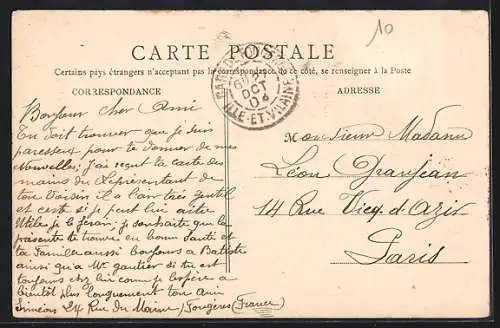 10
CARTE POSTALE
Certains pays étrangers n'acceptant pas la correspondance de ce côté, se renseigner à la Poste
CORRESPONDANCE
ADRESSE
OCT
04
ILLE-ET-VILAINE
Bonjour cher Ami
Tu doit trouver que je suis
paresseux pour te donner de mes
Nouvelles; J'ai reçut ta carte des
mains du Représentant de
ton Voisin il a l'air très gentil
et certe si je peut lui aitre
Utile je le ferai; je souhaite que la
presente te trouve en bonne Santé et
ta Famille aussi bonjours a Batiste
ainsi qu'a Mr gautier si tu est
toujours chez lui comme je l'espère a
bientôt plus Longuement ton Ami
Siméon 24 Rue du Maine, Fougères (France)
Monsieur Madame
Léon Granjean
14 Rue Vicq. d. Azir
Paris